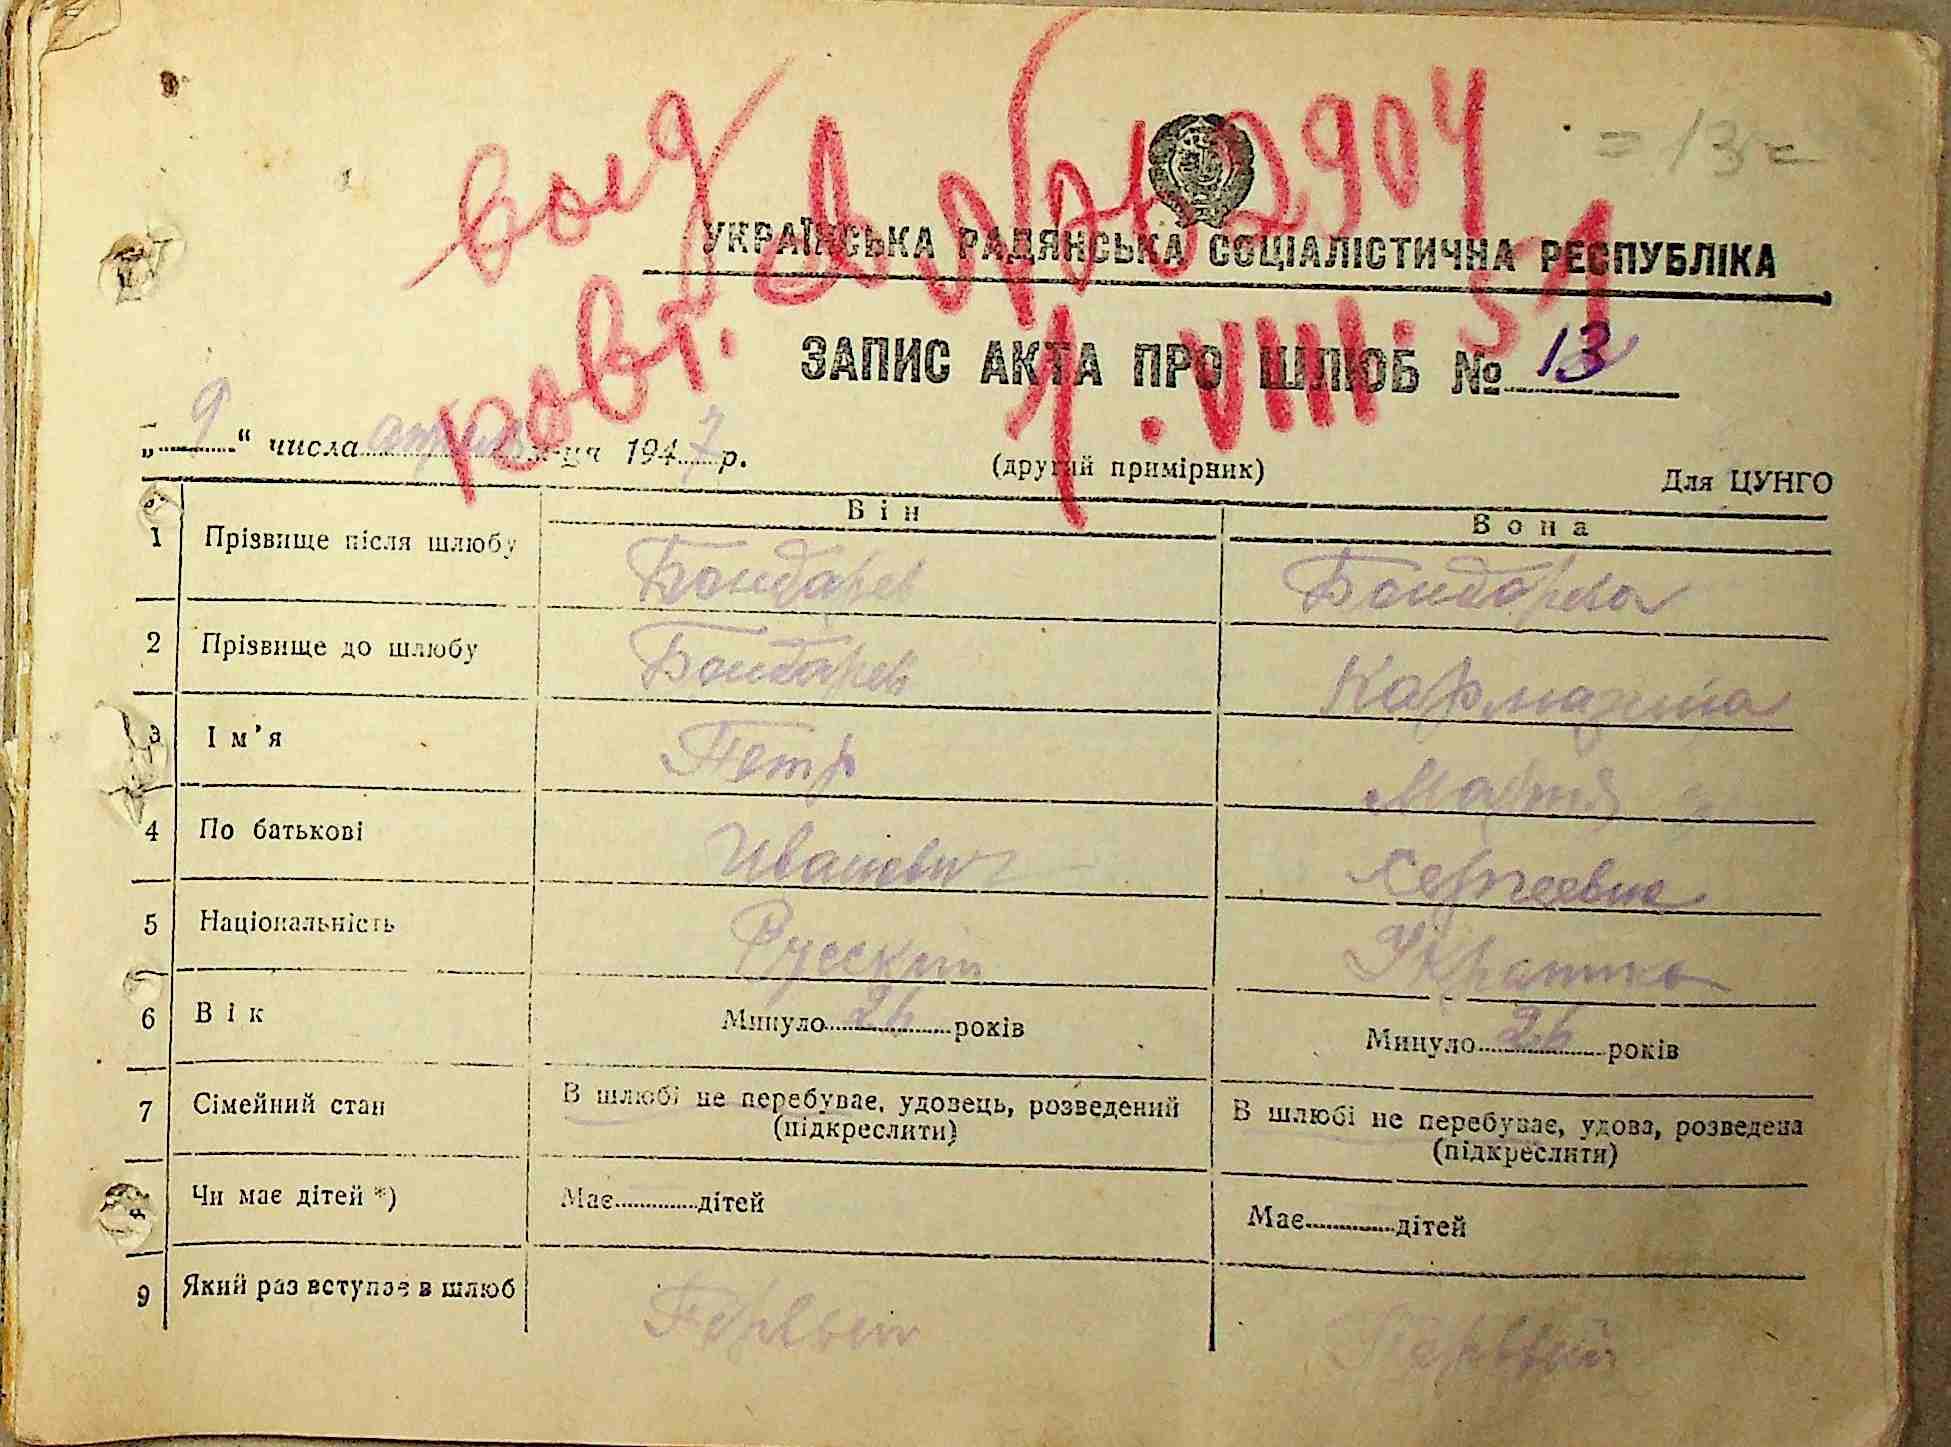 = 13 =
УКРАЇНСЬКА РАДЯНСЬКА СОЦІАЛІСТИЧНА РЕСПУБЛІКА
повт. 2904
1.VIII.51
ЗАПИС АКТА ПРО ШЛЮБ № 13
„ 9 “ числа апрель м-ця 1947 р.
(другий примірник)
Для ЦУНГО
Він Вона
1 Прізвище після шлюбу Бондарев Бондарева
2 Прізвище до шлюбу Бондарев
3 Ім’я Петр Мария
4 По батькові Иванович Сергеевна
5 Національність Русский Украинка
6 Вік Минуло 26 років Минуло 26 років
7 Сімейний стан В шлюбі не перебуває, удовець, розведений (підкреслити) В шлюбі не перебуває, удова, розведена (підкреслити)
Чи має дітей *) Має дітей Має дітей
9 Який раз вступає в шлюб Первый Первый